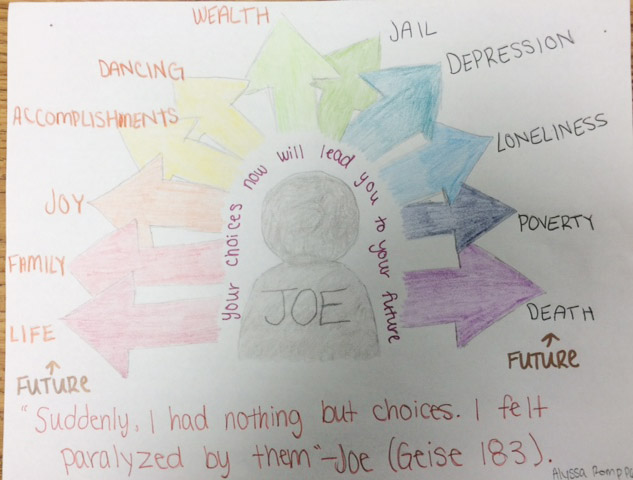 WEALTH
JAIL
DANCING
DEPRESSION
ACCOMPLISHMENTS
LONELINESS
your choices now will lead you to your future
JOY
POVERTY
FAMILY
JOE
LIFE
DEATH
FUTURE
FUTURE
"Suddenly, I had nothing but choices. I felt
paralyzed by them"-Joe (Geise 183).
Alyssa